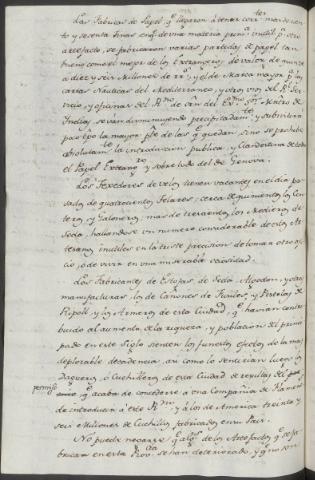 Las Fabricas de Papel, q.e llegaron a tener corr.tes mas de cien-
to y sesenta tinas en q.e de una materia prim.a inutil p.a otro
artefacto, se fabricaron varias partidas de papel tan
bueno como el mejor de los Extrangeros, de valor de quince
a diez y seis Millones de rr.s, y el de Marca mayor p.a
cartas Nauticas del Mediterraneo, y otro uso del R.l Ser-
vicio y oficinas del R.no de orn del Ex.mo S.or Mntro de
Indias, se van disminuyendo precipitadam.te y subsistira
por tpo la mayor p.te de las q.e quedan, sino se prohibe
absolutam.te la introduccion publica, y Clandestina de todo
el Papel Extrang.ro y sobre todo del de Genova.
Los Texedores de velos tienen vacantes en el dia pa-
sados de quatrocientos Telares, cerca de quinientos los Cin-
teros, y Galoneros; mas de trecientos los Medieros de
Seda, hallandose un numero considerable de estos Ar-
tesanos inutiles en la triste precision de tomar otro ofi-
cio, o de vivir en una miserable ociosidad.
Los Fabricantes de Estofas, de Seda, Algodon, y otras
manufacturas, los de Canones de Fuciles, y Pistolas de
Ripoll, y los Armeros de esta Ciudad, q.e havian contri-
buido al aumento de la riqueza, y poblacion del princi-
pado en este Siglo sienten los funestos efectos de la mas
deplorable decadencia, asi como lo sentirian luego los
Dagueros, o Cuchilleros de esta Ciudad de resultas del
permiso q.e acaba de concederse a una Compañia de
de introducir a este R.no y a los de America treinta y
seis Millones de Cuchillos fabricados en su Pais.
No puede negarse q.e alg.s de los Artefactos q.e se fa-
brican en esta Prov.cia se han deteriorado, y q.e no son